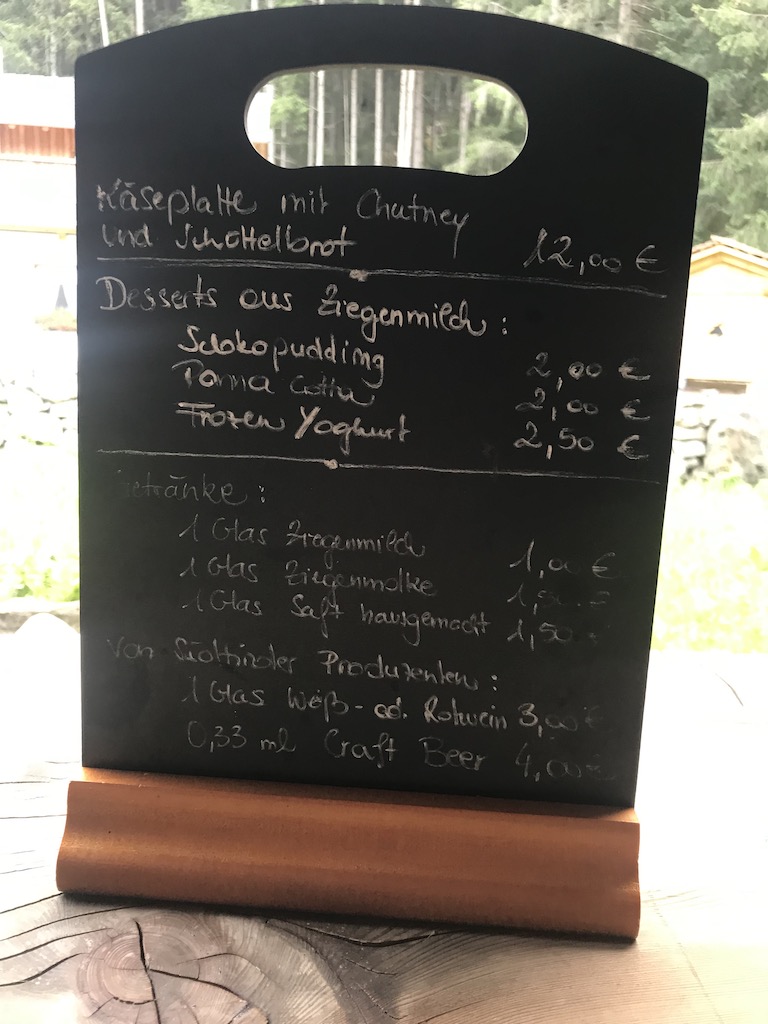 Käseplatte mit Chutney
und Schüttelbrot 12,00 €
Desserts aus Ziegenmilch:
Schokopudding 2,00 €
Panna Cotta 2,00 €
Frozen Yoghurt 2,50 €
Getränke:
1 Glas Ziegenmilch 1,00 €
1 Glas Ziegenmolke
1 Glas Saft hausgemacht 1,50
von Südtiroler Produzenten:
1 Glas Weiß- od. Rotwein 3,00 €
0,33 ml Craft Beer 4,00 €